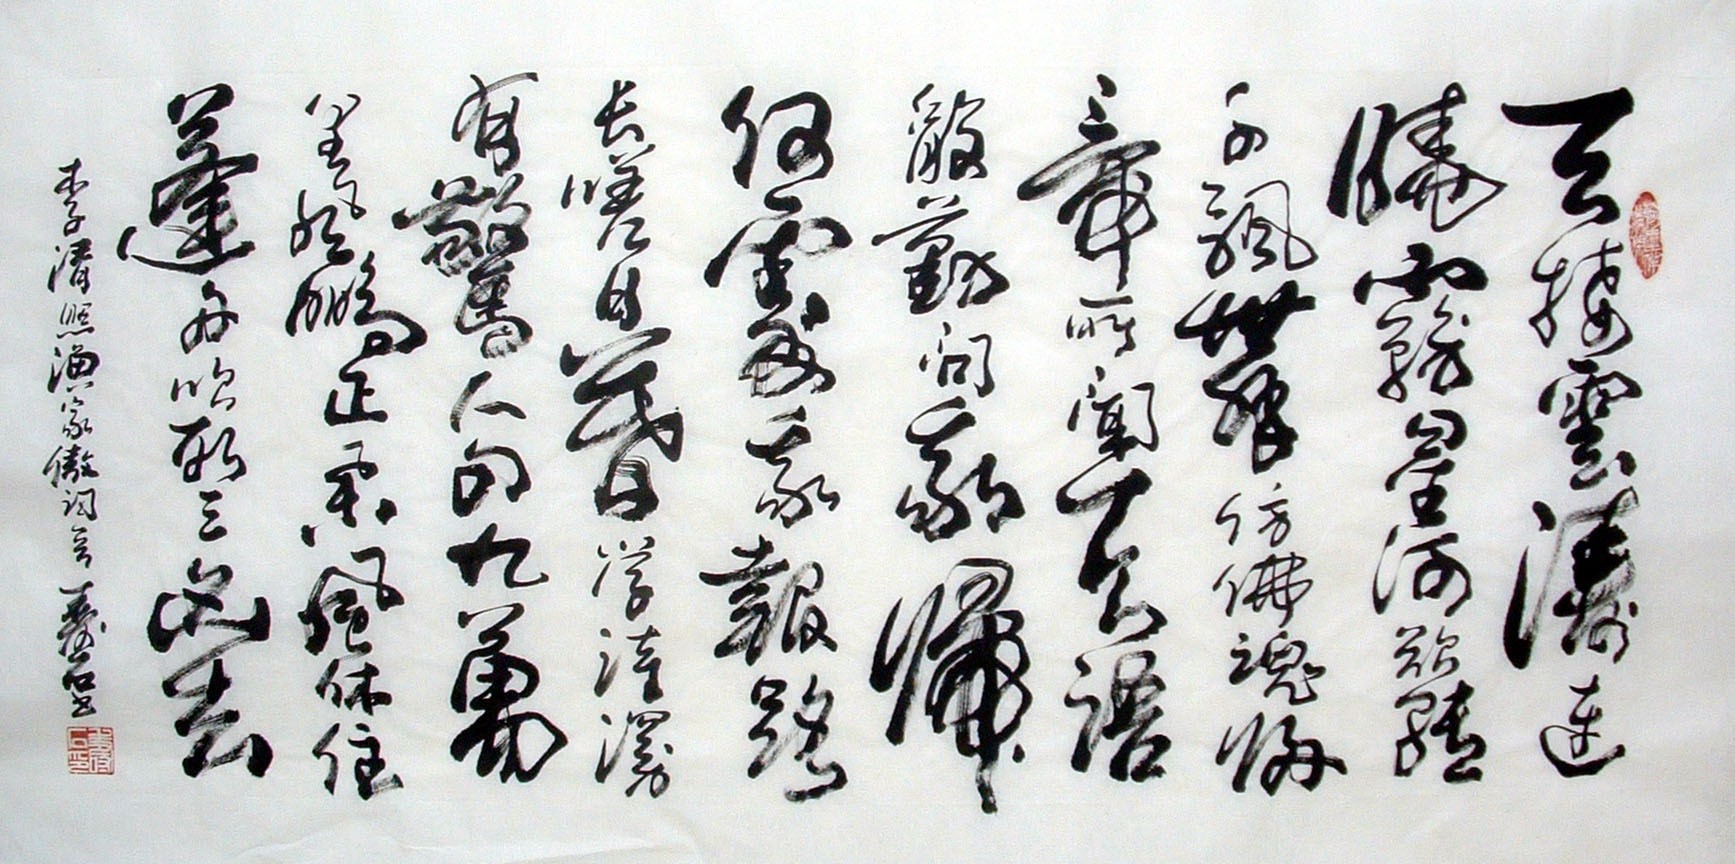 天接雲濤連
曉霧星河欲轉
千帆舞彷彿魂歸
帝所聞天語
殷勤問我歸
何處我報路
長嗟日暮學詩謾
有驚人句九萬
里風鵬正舉風休住
蓬舟吹取三山去
李清照漁家傲詞 壽石書